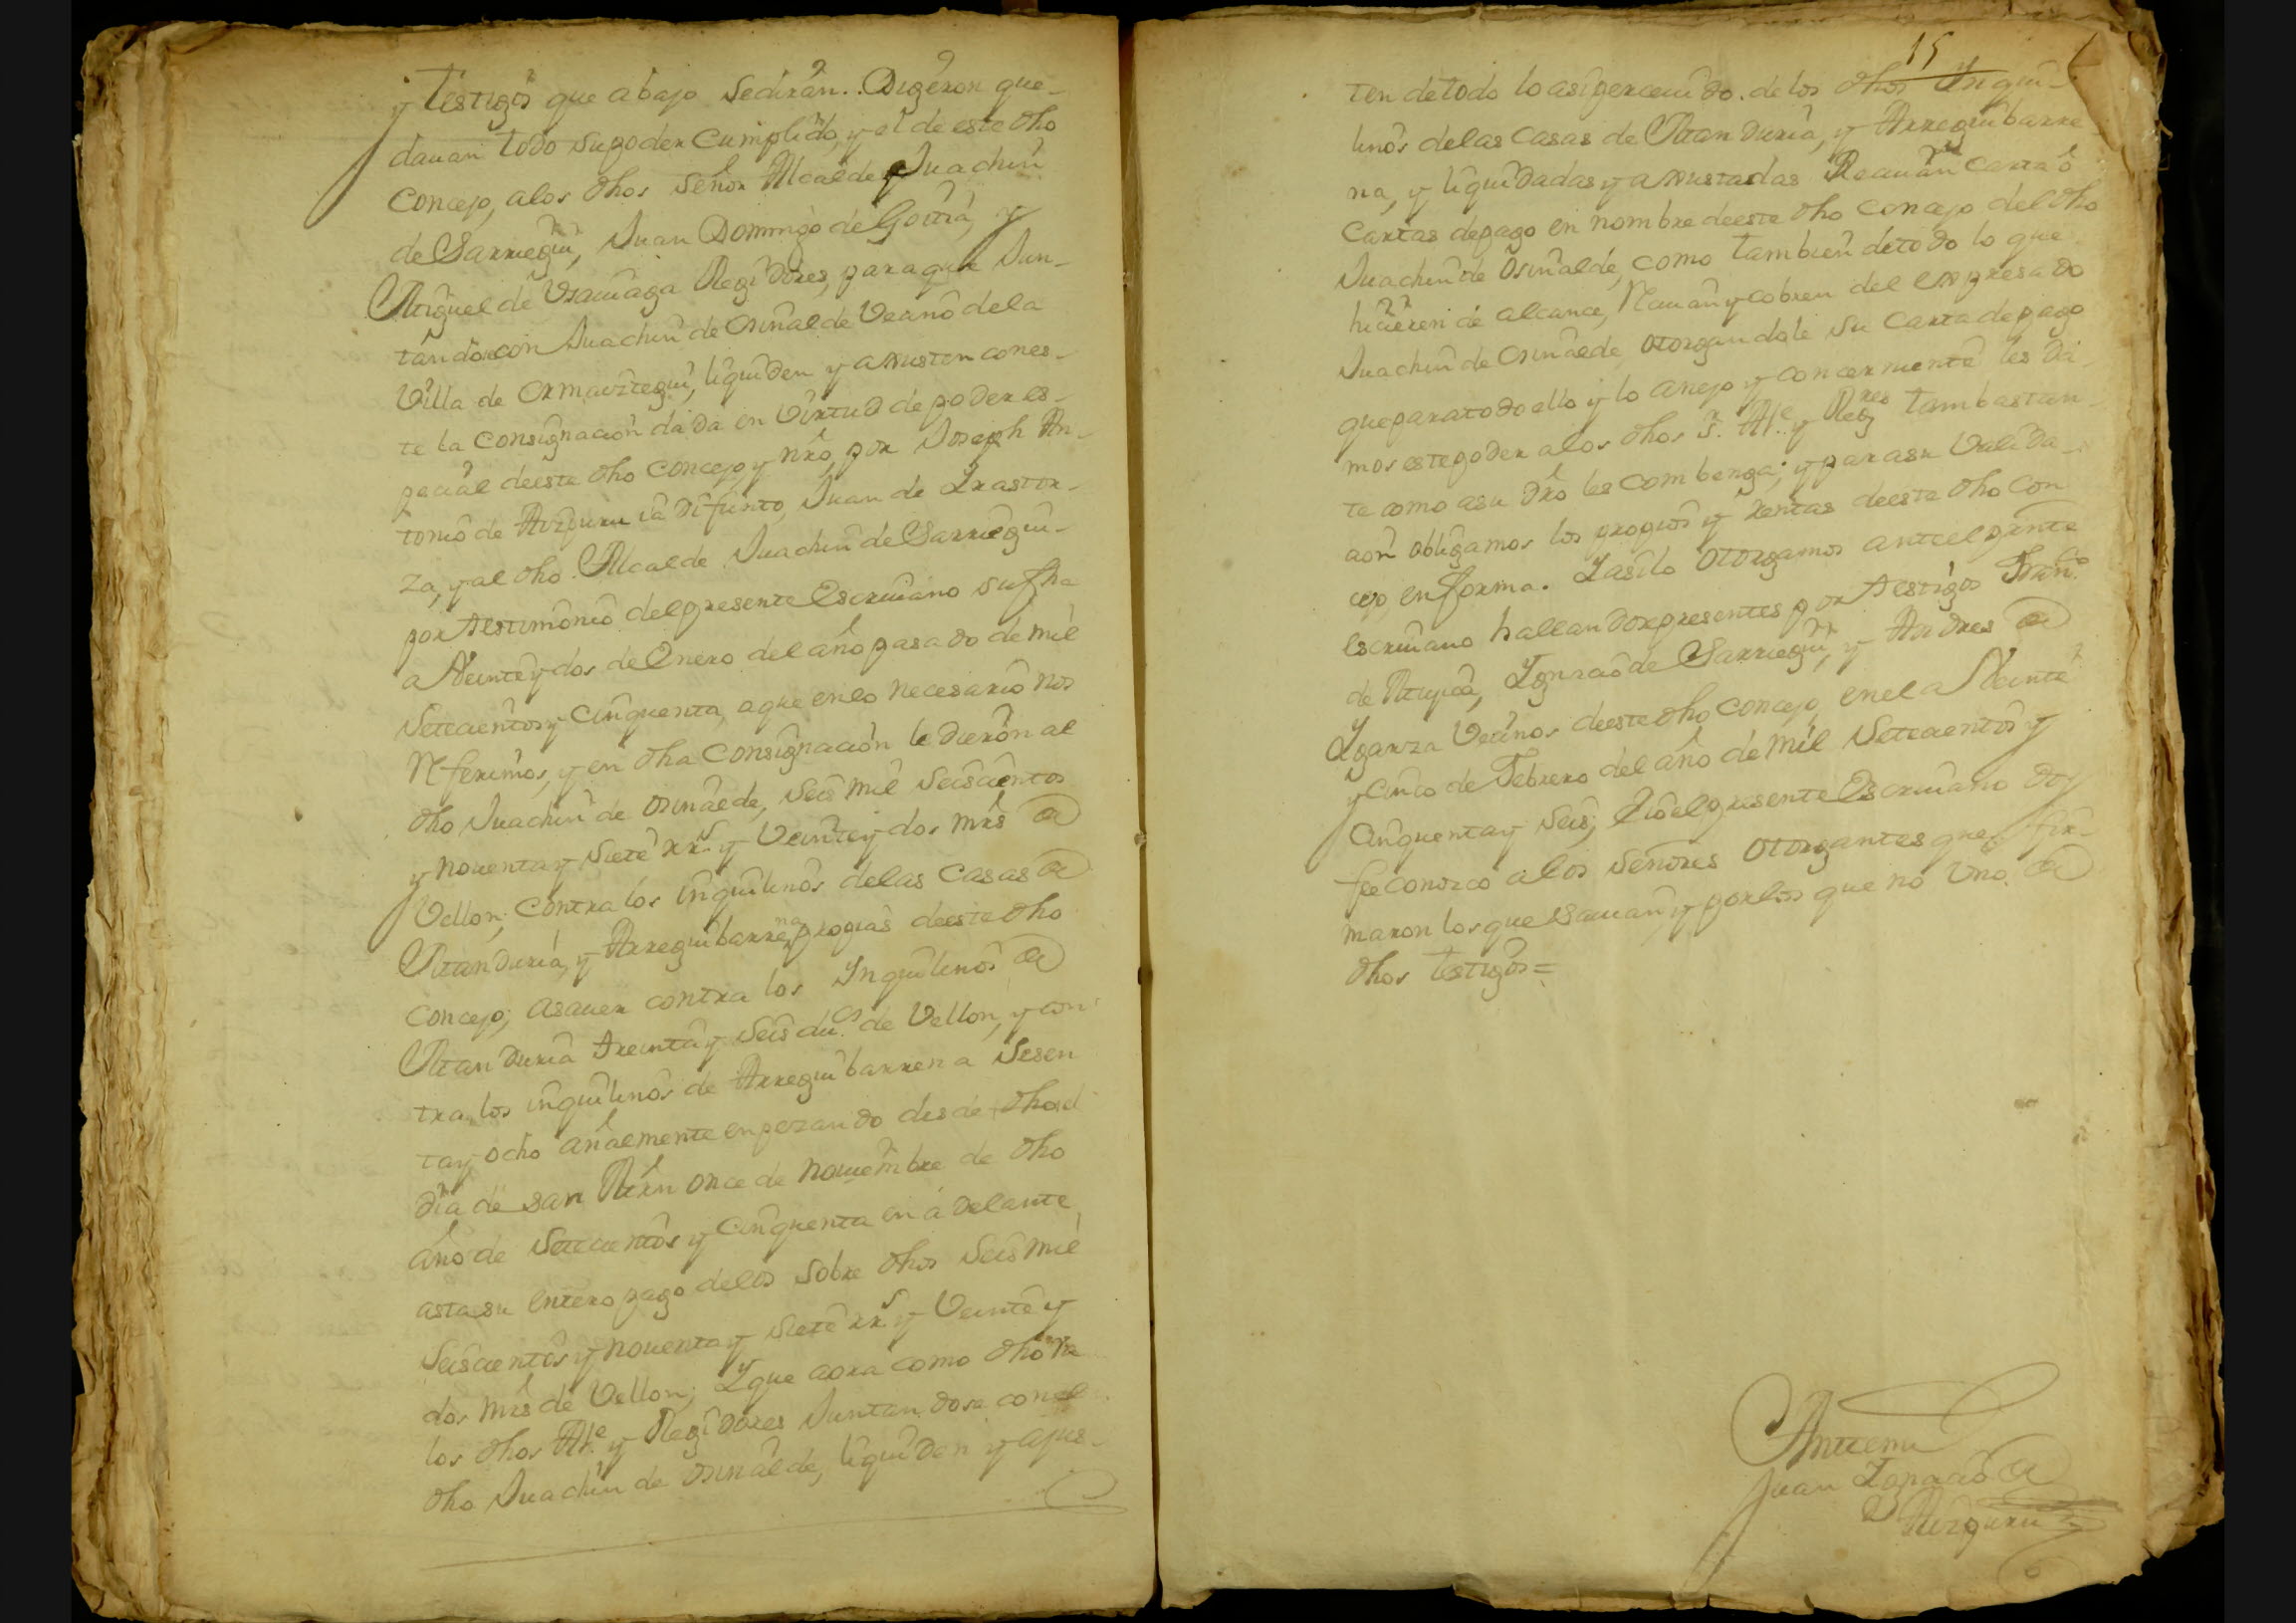 y testigos que abajo sediran. Digeron que-
dauan todo su poder cumplido, y el de este dho
Concejo, alos dhos señor Alcalde Juachin
de Sarriegui, Juan Domingo de Goitia, y
Miguel de Usauiaga Regidores, para que Jun-
tandose con Juachin de Osinalde Vecino dela
Villa de Ormaiztegui, liquiden y ajusten con es-
te la Consignacion dada en Virtud de poder es-
pecial deeste dho Concejo, y nro, por Joseph An-
tonio de Aizpuru ia difunto, Juan de Irastor-
za, y al dho Alcalde Juachin de Sarriegui-
por testimonio del presente Escriuano su fha
a Veinte y dos de Enero del año pasado de mil
Setecientos y Cinquenta, a que en lo necesario nos
Referimos, y en dha Consignacion le dieron al
dho Juachin de Osinalde, seis mil seiscientos
y nouenta y siete rrs y Veinte y dos mrs
Vellon; contra los inquilinos delas Casas
Manduria, y Arreguibarrena propias deeste dho
Concejo; asauer contra los Inquilinos
Manduria treinta y seis dus de Vellon, y con
tra los inquilinos de Arreguibarrena Sesen
tay ocho añalmente enpezando desde dho
dia de san Mrn once de nouiembre de dho
año de setecientos y Cinquenta en adelante
asta su entero pago delos sobre dhos seis mil
Seiscientos y nouenta y siete rrs y Veinte y
dos mrs de Vellon; Y que aora como dho
los dhos Ale y Regidores Juntandose con el
dho Juachin de Osinalde, liquiden y ajus-
15
ten detodo lo asi perceuido. de los dhos Inqui-
linos delas casas de Manduria, y Arreguibarre
na, y liquidadas y ajustadas Reciuan Carta o
Cartas depago en nombre deeste dho concejo del dho
Juachin de Osinalde, como tambien detodo lo que
hiciere de alcance, Reciuan y cobren del expresado
Juachin de Osinalde, otorgandole su Carta depago
que para todo ello y lo anejo y concerniente les da-
mos este poder alos dhos Sr. Ale y Regres tambastan-
te como asu dro les combenga; y para su Valida-
cion obligamos los propios y Rentas deeste dho Con
cejo, en forma. Y asi lo otorgamos ante el presnte
Escriuano hallandose presentes por testigos Franco
de Mugica, Ignacio de Sarriegui, y Andres
Igarza Vecinos deeste dho Concejo, en el a Veinte
y Cinco de Febrero del año de mil Setecientos y
Cinquenta y Seis; E io el presente Escriuano doy
fee conozco alos Señores otorgantes que fir-
maron los que sauian, y por los que no Uno
dhos testigos=
Antemi
Juan Ignacio
Aizpuru